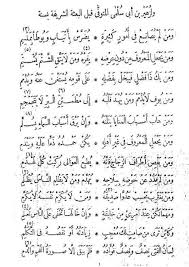 ولزهير بن أبي سلمى المتوفى قبل البعثة الشريفة بسنة
ومن لم يصانع في أمور كثيرة * يضرس بأنياب ويوطأ بمنسم
ومن يجعل المعروف من دون عرضه * يفره ومن لا يتق الشتم يشتم
ومن يك ذا فضل فيبخل بفضله * على قومه يستغن عنه ويذمم
ومن يوف لا يذمم ومن يهد قلبه * إلى مطمئن البر لا يتجمجم
ومن هاب أسباب المنايا ينلنه * وإن يرق أسباب السماء بسلم
ومن يجعل المعروف في غير أهله * يكن حمده ذما عليه ويندم
ومن يعص أطراف الزجاج فإنه * يطيع العوالي ركبت كل لهذم
ومن لم يذد عن حوضه بسلاحه * يهدم ومن لا يظلم الناس يظلم
ومن يغترب يحسب عدوا صديقه * ومن لا يكرم نفسه لا يكرم
ومهما تكن عند امرئ من خليقة * وإن خالها تخفى على الناس تعلم
لسان الفتى نصف ونصف فؤاده * فلم يبق إلا صورة اللحم والدم